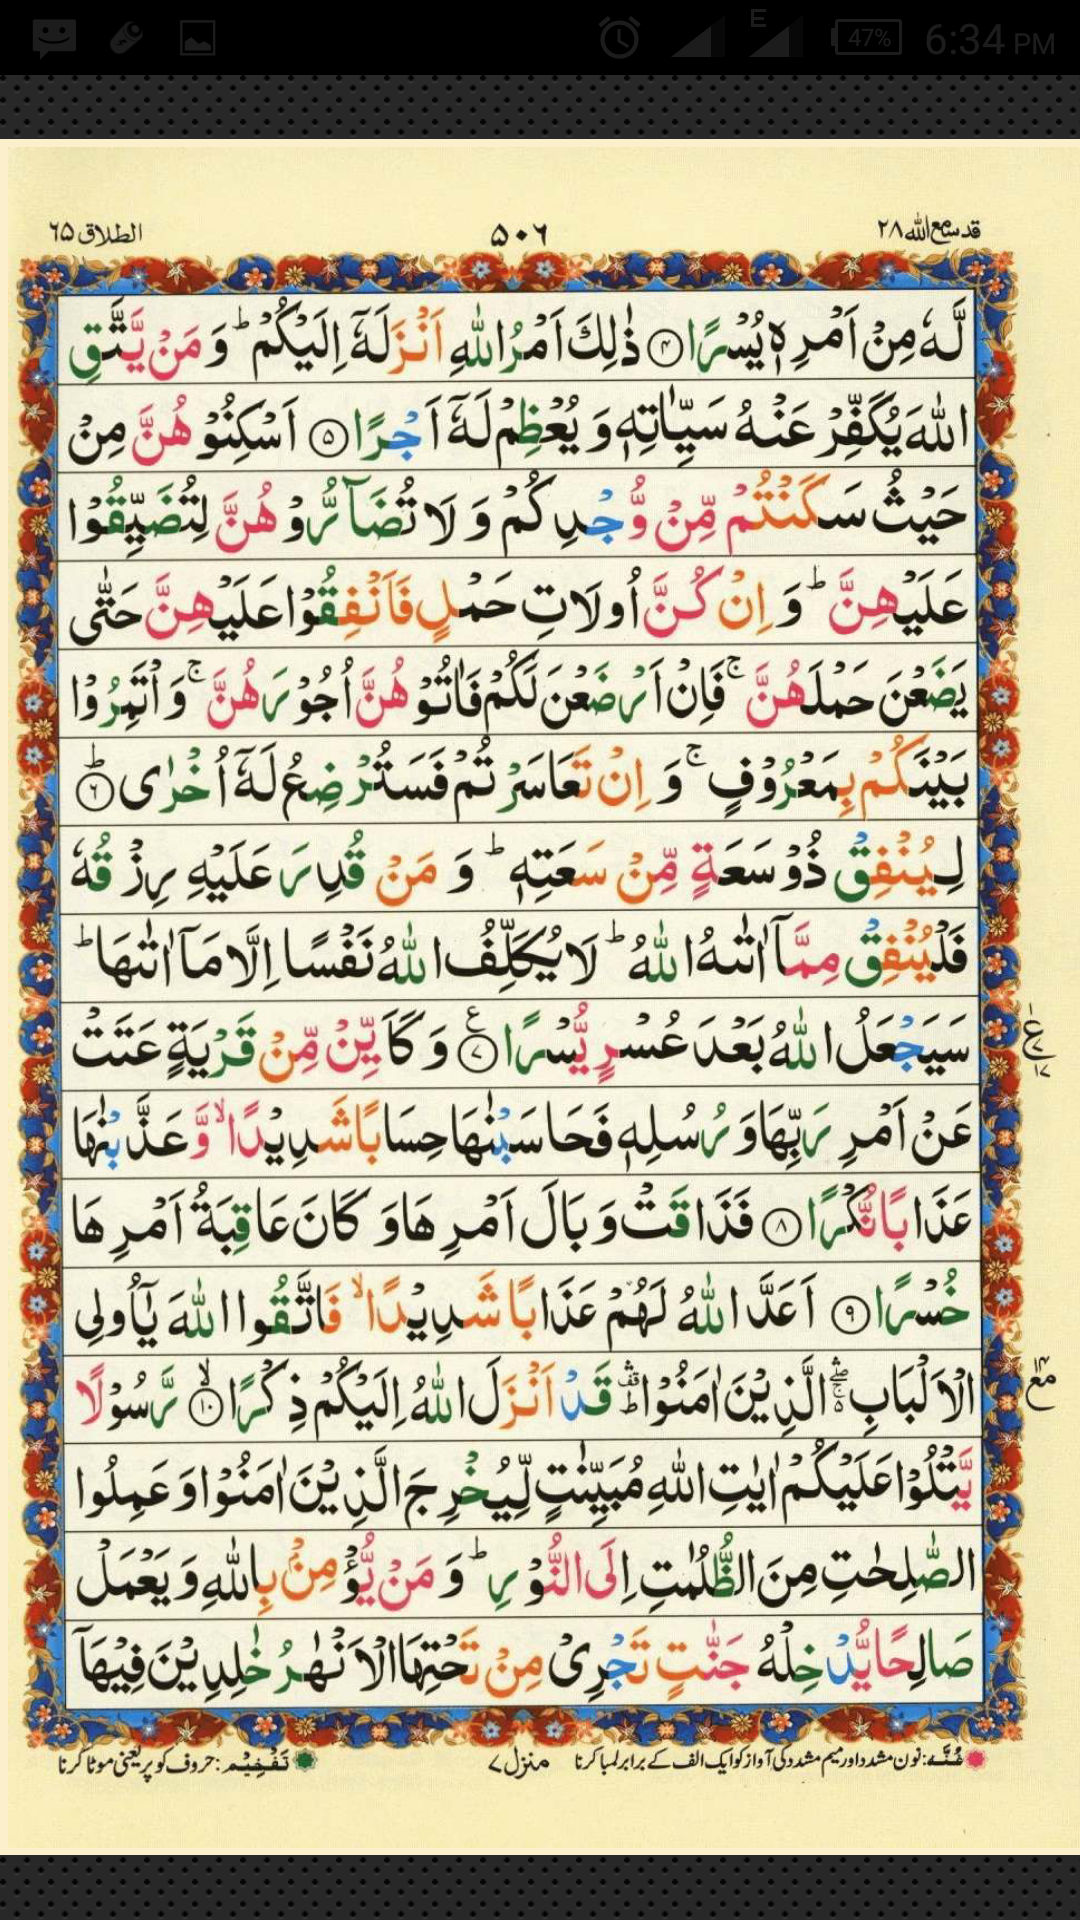 6:34 PM
47%
E
قد سمع الله ٢٨
٥٠٦
الطلاق ٦٥
لَّهٗ مِنْ اَمْرِهٖ يُسْرًا ﴿۴﴾ ذٰلِكَ اَمْرُ اللّٰهِ اَنْزَلَهٗۤ اِلَيْكُمْ ؕ وَ مَنْ يَّتَّقِ
اللّٰهَ يُكَفِّرْ عَنْهُ سَيِّاٰتِهٖ وَ يُعْظِمْ لَهٗۤ اَجْرًا ﴿۵﴾ اَسْكِنُوْهُنَّ مِنْ
حَيْثُ سَكَنْتُمْ مِّنْ وُّجْدِكُمْ وَ لَا تُضَآرُّوْهُنَّ لِتُضَيِّقُوْا
عَلَيْهِنَّ ؕ وَ اِنْ كُنَّ اُولَاتِ حَمْلٍ فَاَنْفِقُوْا عَلَيْهِنَّ حَتّٰى
يَضَعْنَ حَمْلَهُنَّ ۚ فَاِنْ اَرْضَعْنَ لَكُمْ فَاٰتُوْهُنَّ اُجُوْرَهُنَّ ۚ وَ اْتَمِرُوْا
بَيْنَكُمْ بِمَعْرُوْفٍ ۚ وَ اِنْ تَعَاسَرْتُمْ فَسَتُرْضِعُ لَهٗۤ اُخْرٰى ؕ﴿۶﴾
لِيُنْفِقْ ذُوْ سَعَةٍ مِّنْ سَعَتِهٖ ؕ وَ مَنْ قُدِرَ عَلَيْهِ رِزْقُهٗ
فَلْيُنْفِقْ مِمَّاۤ اٰتٰىهُ اللّٰهُ ؕ لَا يُكَلِّفُ اللّٰهُ نَفْسًا اِلَّا مَاۤ اٰتٰىهَا ؕ
سَيَجْعَلُ اللّٰهُ بَعْدَ عُسْرٍ يُّسْرًا ﴿۷﴾ وَ كَاَيِّنْ مِّنْ قَرْيَةٍ عَتَتْ
عَنْ اَمْرِ رَبِّهَا وَ رُسُلِهٖ فَحَاسَبْنٰهَا حِسَابًا شَدِيْدًا ۙ وَّ عَذَّبْنٰهَا
عَذَابًا نُّكْرًا ﴿۸﴾ فَذَاقَتْ وَبَالَ اَمْرِهَا وَ كَانَ عَاقِبَةُ اَمْرِهَا
خُسْرًا ﴿۹﴾ اَعَدَّ اللّٰهُ لَهُمْ عَذَابًا شَدِيْدًا ۙ فَاتَّقُوا اللّٰهَ يٰۤاُولِى
الْاَلْبَابِ ۛۚ الَّذِيْنَ اٰمَنُوْا ۛؕ قَدْ اَنْزَلَ اللّٰهُ اِلَيْكُمْ ذِكْرًا ۙ﴿۱۰﴾ رَّسُوْلًا
يَّتْلُوْا عَلَيْكُمْ اٰيٰتِ اللّٰهِ مُبَيِّنٰتٍ لِّيُخْرِجَ الَّذِيْنَ اٰمَنُوْا وَ عَمِلُوا
الصّٰلِحٰتِ مِنَ الظُّلُمٰتِ اِلَى النُّوْرِ ؕ وَ مَنْ يُّؤْمِنْۢ بِاللّٰهِ وَ يَعْمَلْ
صَالِحًا يُّدْخِلْهُ جَنّٰتٍ تَجْرِىْ مِنْ تَحْتِهَا الْاَنْهٰرُ خٰلِدِيْنَ فِيْهَاۤ
غُنَّه: نون مشدد اور میم مشدد کی آواز کو ایک الف کے برابر لمبا کرنا
منزل ۷
تَفْخِيْم: حروف کو پُر یعنی موٹا کرنا